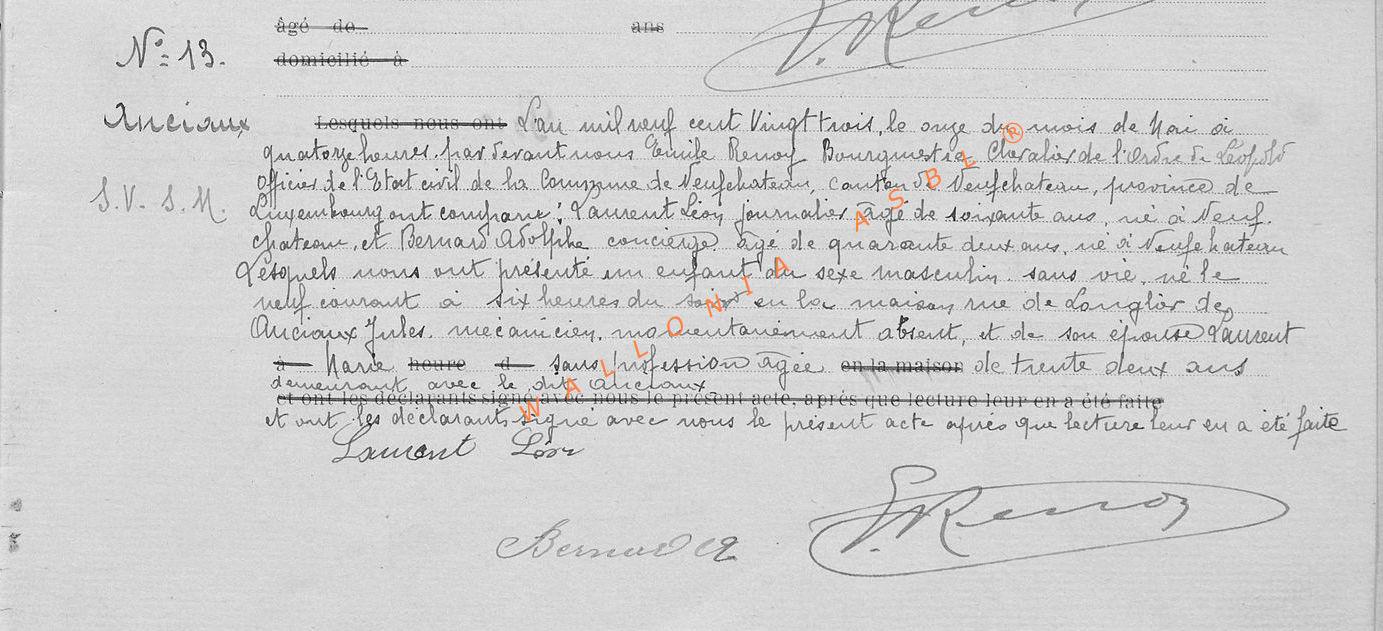 âgé de ans
N° 13.
domicilié à
Anciaux
Lesquels nous ont L'an mil neuf cent Vingt trois, le onze du mois de Mai à
quatorze heures, par devant nous Emile Renoy Bourgmestre Chevalier de l'Ordre de Léopold
Officier de l'Etat civil de la Commune de Neufchateau, canton de Neufchateau, province de
S.V. S.M.
Luxembourg ont comparu : Laurent Léon journalier âgé de soixante ans, né à Neuf.
chateau, et Bernard Adolphe concierge âgé de quarante deux ans, né à Neufchateau
Lesquels nous ont présenté un enfant du sexe masculin sans vie, né le
neuf courant à six heures du soir en la maison rue de Longlier de
Anciaux Jules, mécanicien, momentanément absent, et de son épouse Laurent
à Marie heure d sans profession âgée en la maison de trente deux ans
demeurant avec le dit Anciaux
et ont les déclarants signé avec nous le présent acte, après que lecture leur en a été faite
et ont les déclarants signé avec nous le présent acte après que lecture leur en a été faite
Laurent Léon
E. Renoy
Bernard A
WALLONIA ASBL ®